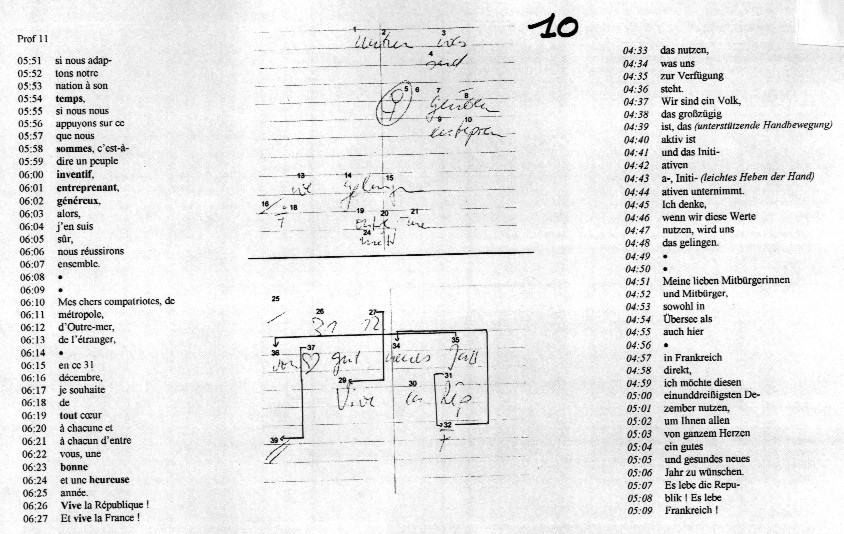 10
Prof 11
05:51 si nous adap-
05:52 tons notre
05:53 nation à son
05:54 temps,
05:55 si nous nous
05:56 appuyons sur ce
05:57 que nous
05:58 sommes, c'est-à-
05:59 dire un peuple
06:00 inventif,
06:01 entreprenant,
06:02 généreux,
06:03 alors,
06:04 j'en suis
06:05 sûr,
06:06 nous réussirons
06:07 ensemble.
06:08 •
06:09 •
06:10 Mes chers compatriotes, de
06:11 métropole,
06:12 d'Outre-mer,
06:13 de l'étranger,
06:14 •
06:15 en ce 31
06:16 décembre,
06:17 je souhaite
06:18 de
06:19 tout cœur
06:20 à chacune et
06:21 à chacun d'entre
06:22 vous, une
06:23 bonne
06:24 et une heureuse
06:25 année.
06:26 Vive la République !
06:27 Et vive la France !
1 2 3
4
5 6 7 8
9 10
13 14 15
16 18
19 20 21
24
25
26 27
31 12
34 35
36 37
gut
29 30 31
Vive la Rép
32
39
04:33 das nutzen,
04:34 was uns
04:35 zur Verfügung
04:36 steht.
04:37 Wir sind ein Volk,
04:38 das großzügig
04:39 ist, das (unterstützende Handbewegung)
04:40 aktiv ist
04:41 und das Initi-
04:42 ativen
04:43 a-, Initi- (leichtes Heben der Hand)
04:44 ativen unternimmt.
04:45 Ich denke,
04:46 wenn wir diese Werte
04:47 nutzen, wird uns
04:48 das gelingen.
04:49 •
04:50 •
04:51 Meine lieben Mitbürgerinnen
04:52 und Mitbürger,
04:53 sowohl in
04:54 Übersee als
04:55 auch hier
04:56 •
04:57 in Frankreich
04:58 direkt,
04:59 ich möchte diesen
05:00 einunddreißigsten De-
05:01 zember nutzen,
05:02 um Ihnen allen
05:03 von ganzem Herzen
05:04 ein gutes
05:05 und gesundes neues
05:06 Jahr zu wünschen.
05:07 Es lebe die Repu-
05:08 blik ! Es lebe
05:09 Frankreich !